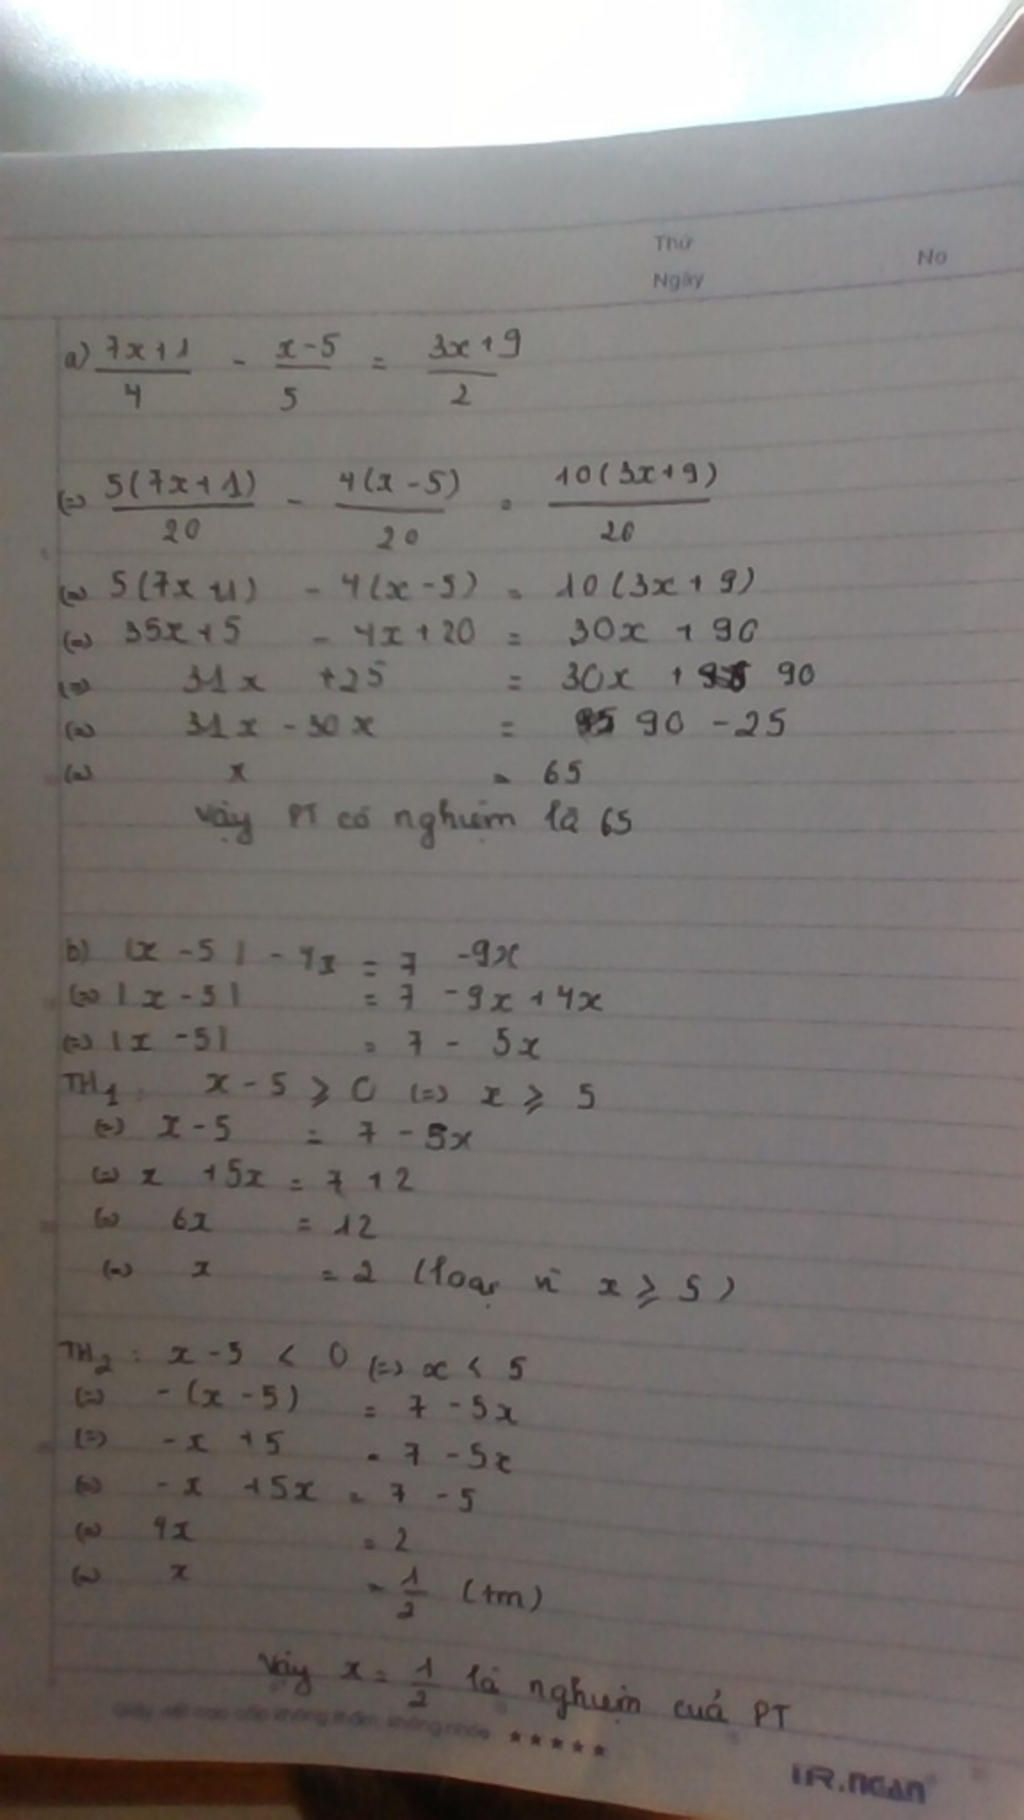 Thứ
No
Ngày
a) 7x+1/4 - x-5/5 = 3x+9/2
(=) 5(7x+1)/20 - 4(x-5)/20 = 10(3x+9)/20
(=) 5(7x+1) - 4(x-5) = 10(3x+9)
(=) 35x+5 - 4x+20 = 30x + 90
(=) 31x +25 = 30x + 90
(=) 31x - 30x = 90 - 25
(=) x = 65
vậy PT có nghiệm là 65
b) |x-5| - 4x = 7 - 9x
(=) |x-5| = 7 - 9x + 4x
(=) |x-5| = 7 - 5x
TH1: x-5 ≥ 0 (=) x ≥ 5
(=) x-5 = 7 - 5x
(=) x +5x = 7 + 2
(=) 6x = 12
(=) x = 2 (loại vì x ≥ 5)
TH2: x-5 < 0 (=) x < 5
(=) -(x-5) = 7 - 5x
(=) -x +5 = 7 - 5x
(=) -x +5x = 7 - 5
(=) 4x = 2
(=) x = 1/2 (tm)
vậy x = 1/2 là nghiệm cuả PT
Giấy viết cao cấp không thấm, không nhòe ★★★★★